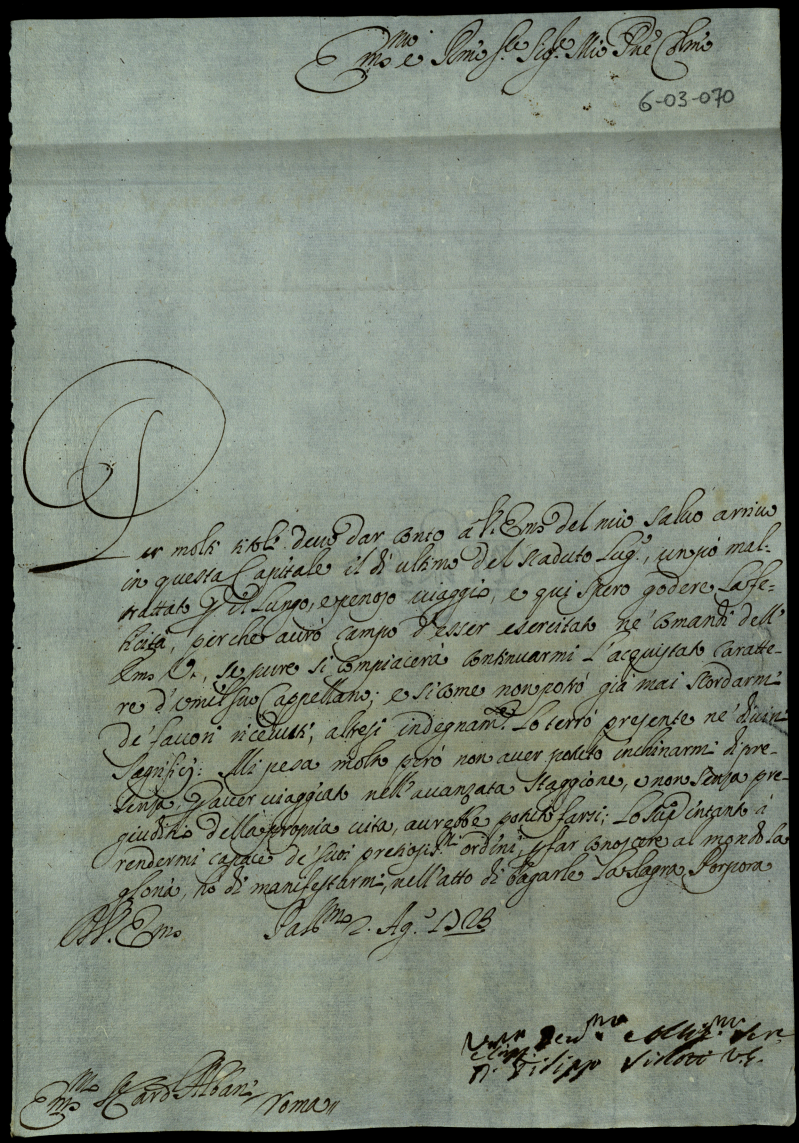 Em.mo e Rmo Sre Sig.re Mio Pne Colmo
6-03-070
Per molti titoli devo dar conto à V. Emza del mio salvo arrivo
in questa Capitale il dì ultimo del scaduto Lug.o, un pò mal-
trattato p. il lungo, e penoso viaggio, e qui spero godere la fe-
licità, perche avrò campo d'esser esercitato ne' comandi dell'
Emza V., se pure si compiacerà continuarmi l'acquistato caratte-
re d' suo Cappellano; e sicome non potrò già mai scordarmi
de' favori ricevuti, altresi indegnam.te Lo terrò presente ne' divini
Sagrificj: Mi pesa molto però non aver potuto inchinarmi di pre-
senza, p aver viaggiato nell'avanzata staggione, e non senza pre-
giudizio della propria vita, avrebbe potuto farsi; Lo intanto à
rendermi capace de' suoi pretiosis.mi ordini, p far conoscere al mondo la
gloria, hò di manifestarmi, nell'atto di bagarle La Sagra Porpora
D. V. Emza Pal.mo 2. Ag.o 1728
Um.mo Dev.mo e Obligt.mo Ser.re
D. Filippo
Em.mo Sr Card. Albani Roma